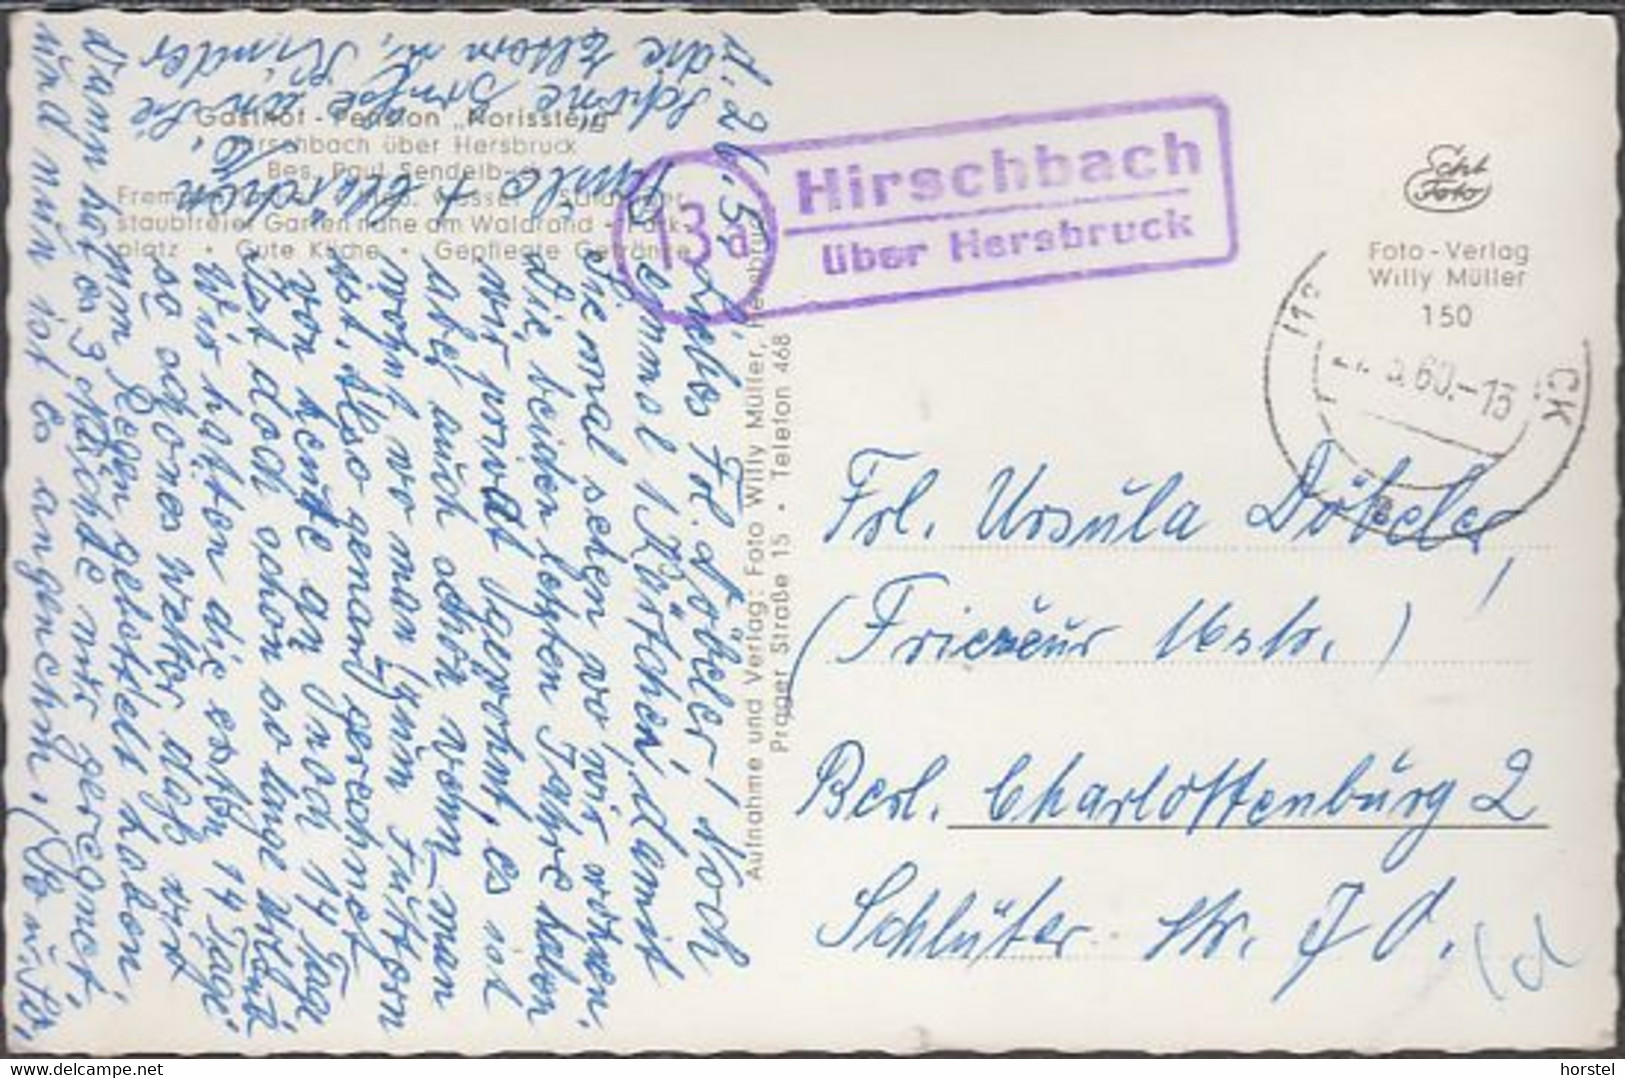 Gasthof - Pension „Norissteig"
Hirschbach über Hersbruck
Bes. Paul Sendelbeck
staubfreier Garten nahe am Waldrand • Park-
platz • Gute Küche • Gepflegte Getränke
d. 26. 5.
Liebes Frl. Döbeler! Noch
einmal 1 Kärtchen, damit
Sie mal sehen wo wir wohnen.
Die beiden letzten Jahre haben
wir privat gewohnt, es ist
aber auch schön wenn man
wohnt wo man zum Futtern
ist. Also genau gerechnet
von heute an noch 14 Tage
Ist doch schon so lange
Wir hatten die ersten 14 Tage
so schönes Wetter daß wir
um Regen gebettelt haben.
Dann hat es 3 Nächte nur geregnet,
und nun ist es angenehm.
Schöne Grüße an Sie
u. die Eltern u. Kinder
Aufnahme und Verlag: Foto Willy Müller, Hersbruck
Prager Straße 15 • Telefon 468
13a
Hirschbach
über Hersbruck
Echt
Foto
Foto-Verlag
Willy Müller
150
5.60.-15
CK
Frl. Ursula Döbeler,
(Frieseur Mstr.)
Berl. Charlottenburg 2
Schlüter str. 70.
delcampe.net
horstel